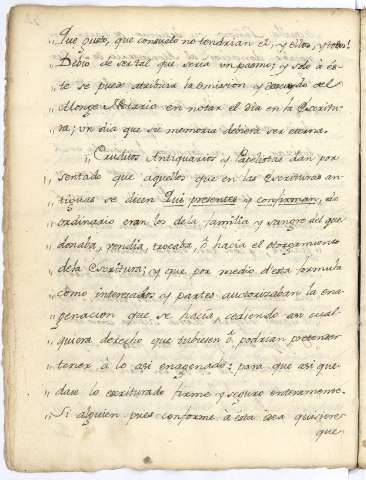 „ Que gusto, que consuelo no tendrian el, y ellos, y todos!
„ Debio de ser tal que seria un pasmo; y solo à es-
„ te se puede atribuir la omision y descuydo del
„ Monge Notario en notar el dia en la Escritu-
„ ra; un dia que su memoria debiera ser eterna.
„ Eruditos Antiquarios y dan por
„ sentado que aquellos que en las Escrituras an-
„ tiguas se dicen Qui presentes y confirman, de
„ ordinario eran los dela familia y sangre del que
„ donaba, vendia, trocaba, ò hacia el otorgamiento
„ dela Escritura; y que por medio d'esta formula
„ como interezados y partes auctorizaban la ena-
„ genacion que se hacia, cediendo an cual-
„ quiera derecho que tubiesen ò podrian pretender
„ tener à lo asi enagenado: para que asi que-
„ dase lo escriturado firme y seguro enteramente.
„ Si alguien pues conforme à esta idea quisiere
que